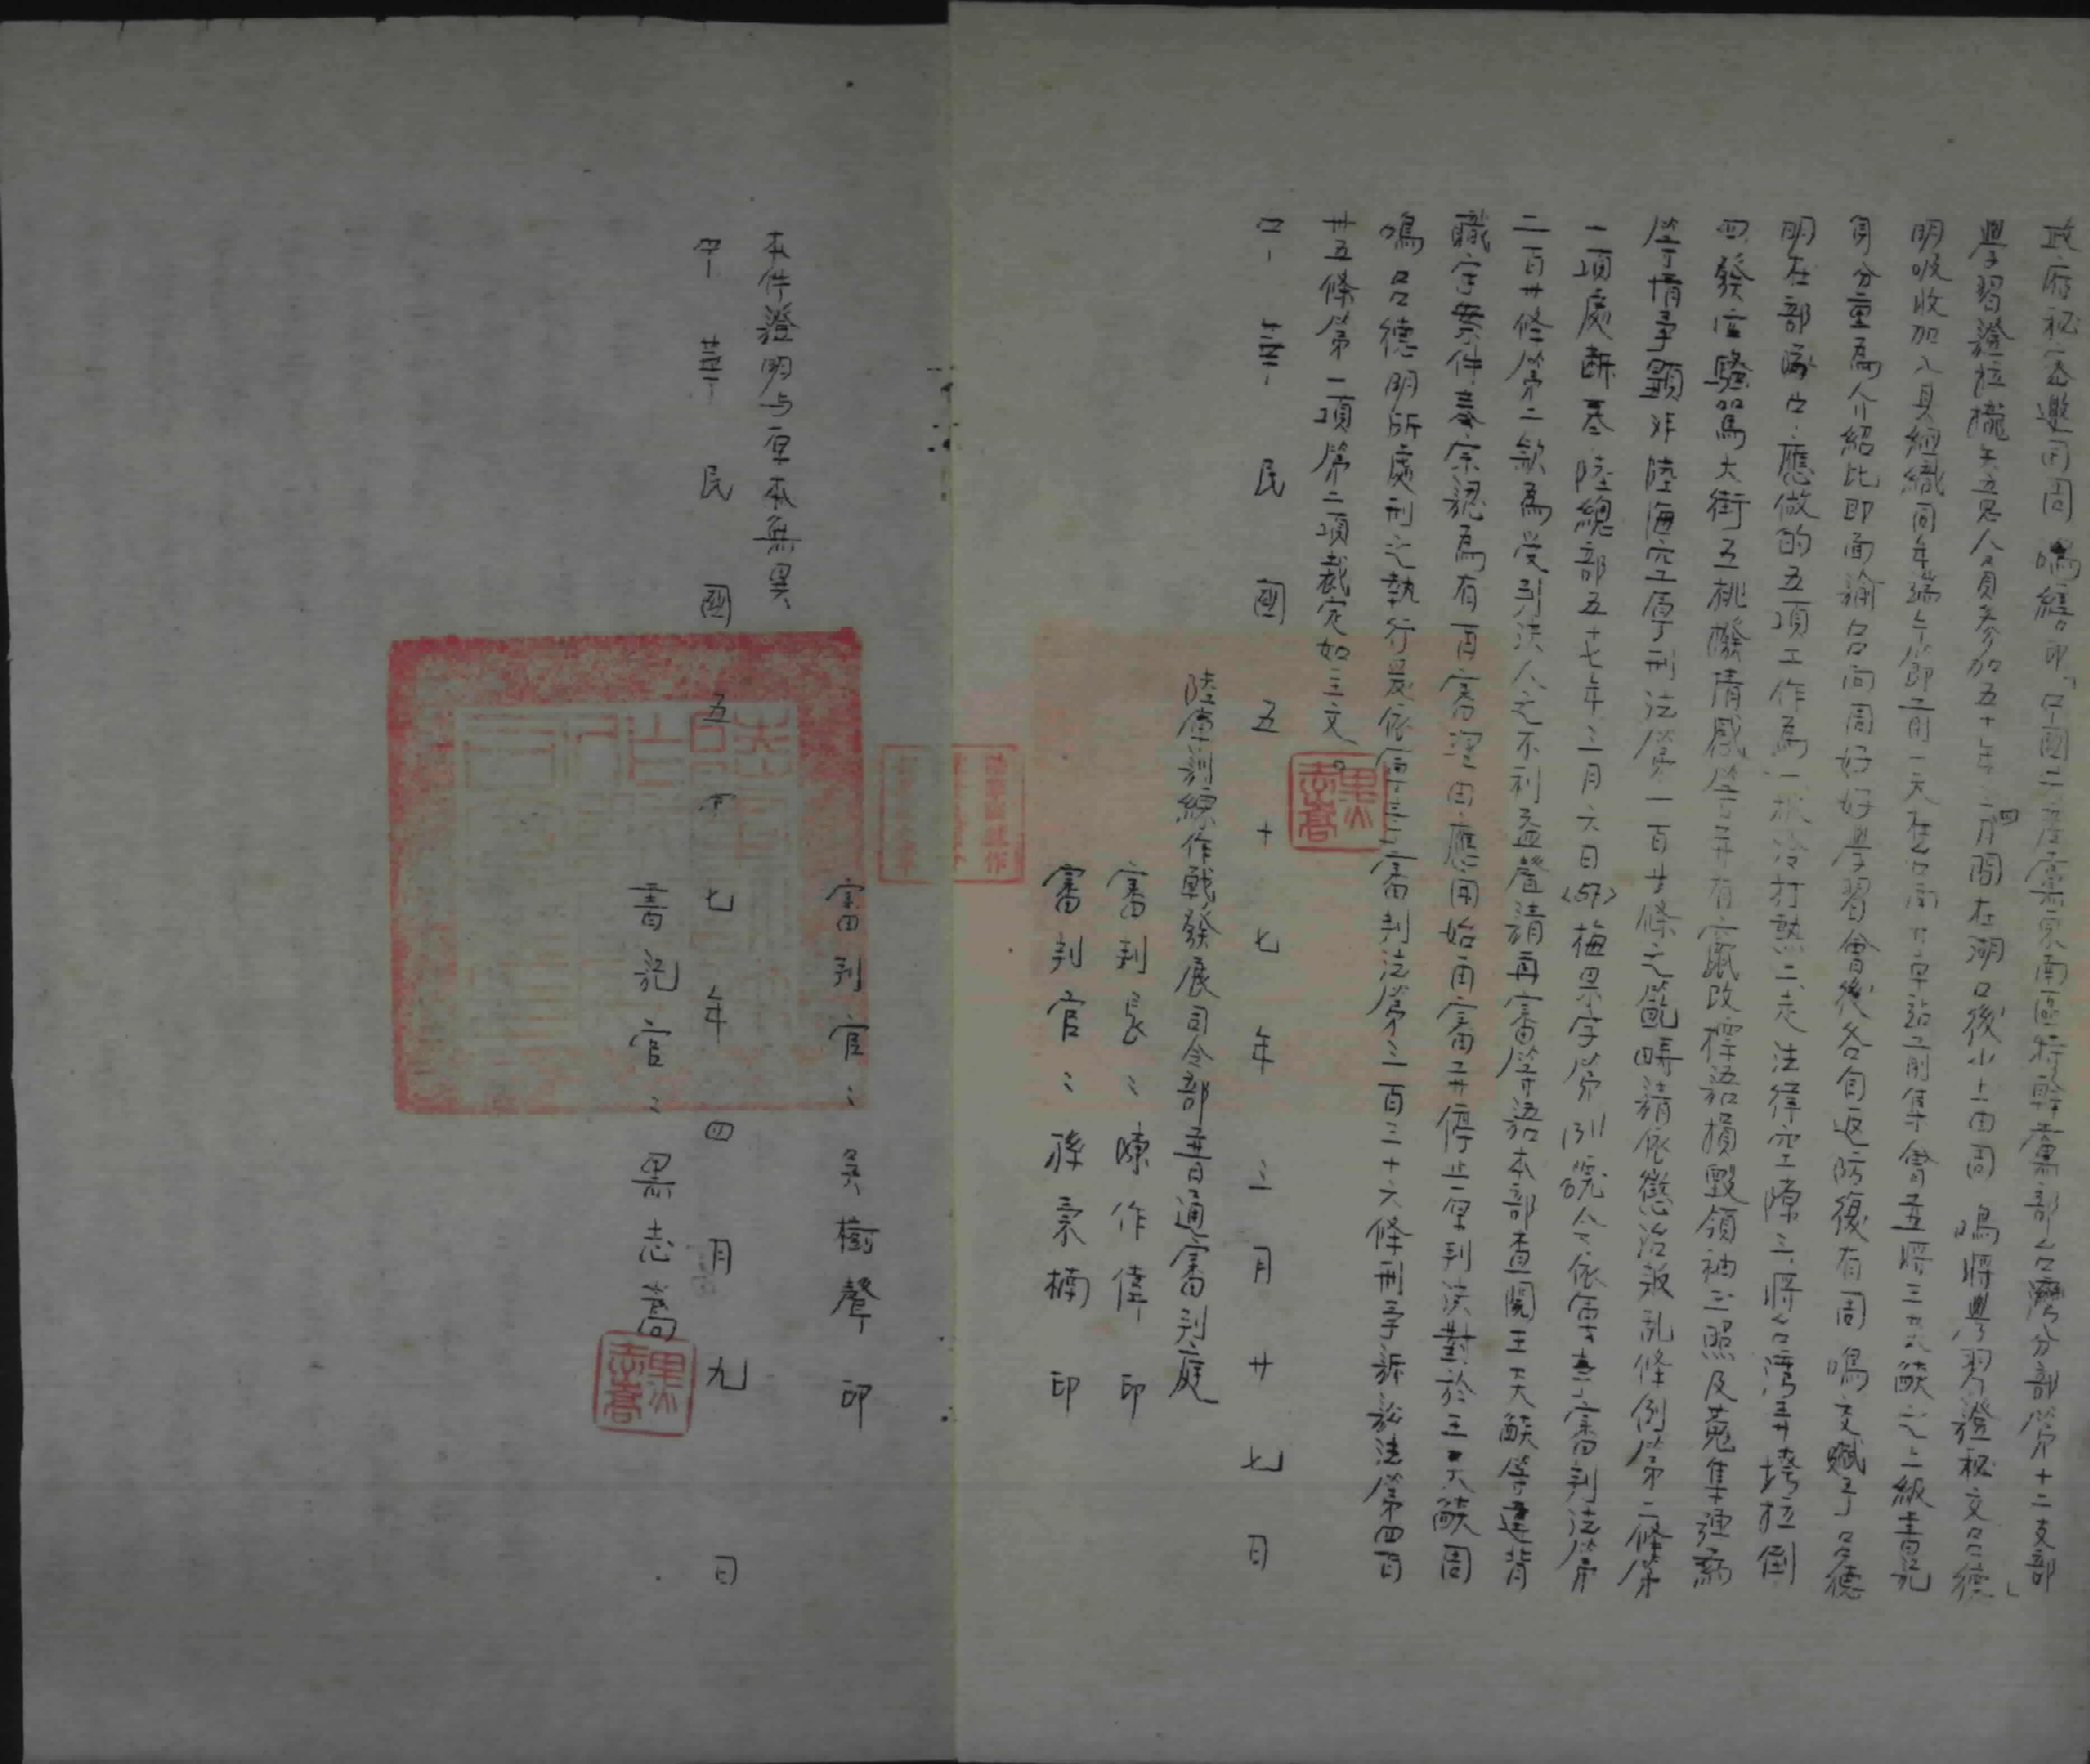 政府秘密邀同周 鳴繕印「中國共產黨東南區特幹黨部台灣分部第十二支部
學習證拉攏失意人員參加五十年四月間在湖口後山上由周 鳴將學習證秘交呂德
明吸收加入其組織同年端午節前一天在台南火車站前集會並將王天籟之上級書記
身分童為介紹比即面諭呂向周好好學習會後各自返防復有周 鳴交賦予呂德
明在部隊中應做的五項工作為一抓冷打熱二走法律空隙三將台灣弄垮拉倒
四發信騷罵大街五挑撥情感等并有竄改標語損毀領袖玉照及蒐集連病
等情事顯非陸海空軍刑法第一百廿條之範疇請依懲治叛亂條例第二條第
一項處斷奉陸總部五十七年三月六日(57)梅果字第1311號令依軍事審判法第
二百廿條第二款為受判決人之不利益聲請再審等語本部查閱王天籟等違背
職守案件卷宗認為有再審理由應開始再審并停止原判決對於王天籟周
鳴呂德明所處刑之執行爰依軍事審判法第二百三十六條刑事訴訟法第四百
卅五條第一項第二項裁定如主文。
中華民國五十七年三月廿七日
陸軍訓練作戰發展司令部普通審判庭
審判長：陳作偉 印
審判官：孫家楠 印
審判官：吳樹聲 印
本件證明与原本無異
中華民國五十七年四月九日
書記官：黑志嵩